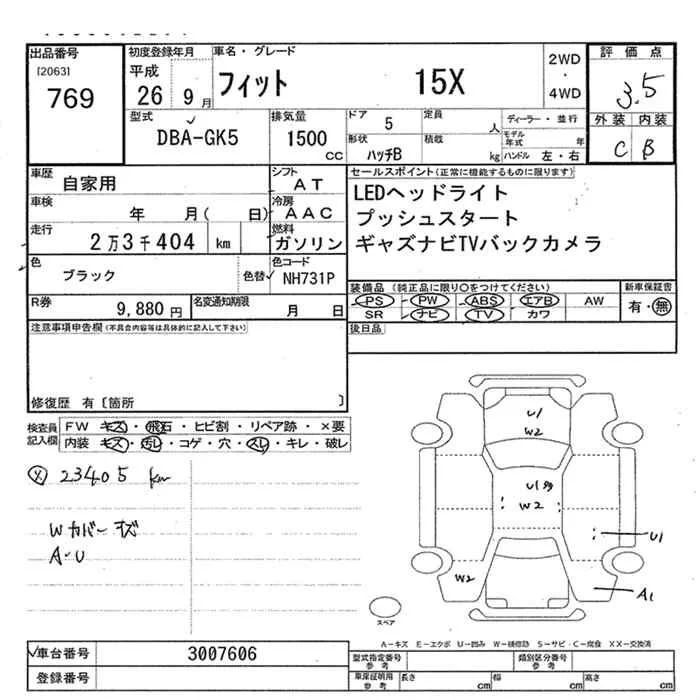 出品番号
[2063]
769
初度登録年月
平成
26 9月
車名・グレード
フィット 15X
2WD
・
4WD
評価点
3.5
外装 内装
C B
型式
DBA-GK5
排気量
1500
CC
ドア 5
形状
ハッチB
定員 人
積載 kg
ディーラー・並行
モデル年式 年
ハンドル 左・右
車歴 自家用
シフト AT
車検 年 月( 日)
冷房 AAC
走行 2万3千404 km
燃料 ガソリン
色 ブラック 色替
色コード NH731P
R券 9,880円
名変通知期限 月 日
セールスポイント(正常に機能するものに限ります)
LEDヘッドライト
プッシュスタート
ギャズナビTVバックカメラ
装備品(純正品に限り○をつけてください)
PS PW ABS エアB AW
SR ナビ TV カワ
新車保証書
有・無
後日品
注意事項申告欄(不具合内容等は具体的に記入して下さい)
修復歴 有〔箇所 〕
検査員記入欄
FW キズ・飛石・ヒビ割・リペア跡・×要
内装 キズ・汚レ・コゲ・穴・スレ・キレ・破レ
メ 23405 km
Wカバーキズ
A・U
U1
W2
U1多
W2
U1
W2
A1
スペア
A-キズ E-エクボ U-凹み W-補修跡 S-サビ・C-腐食 XX-交換済
車台番号 3007606
登録番号
型式指定番号 参考
類別区分番号 参考
車庫証明用 参考
長さ cm 幅 cm 高さ cm